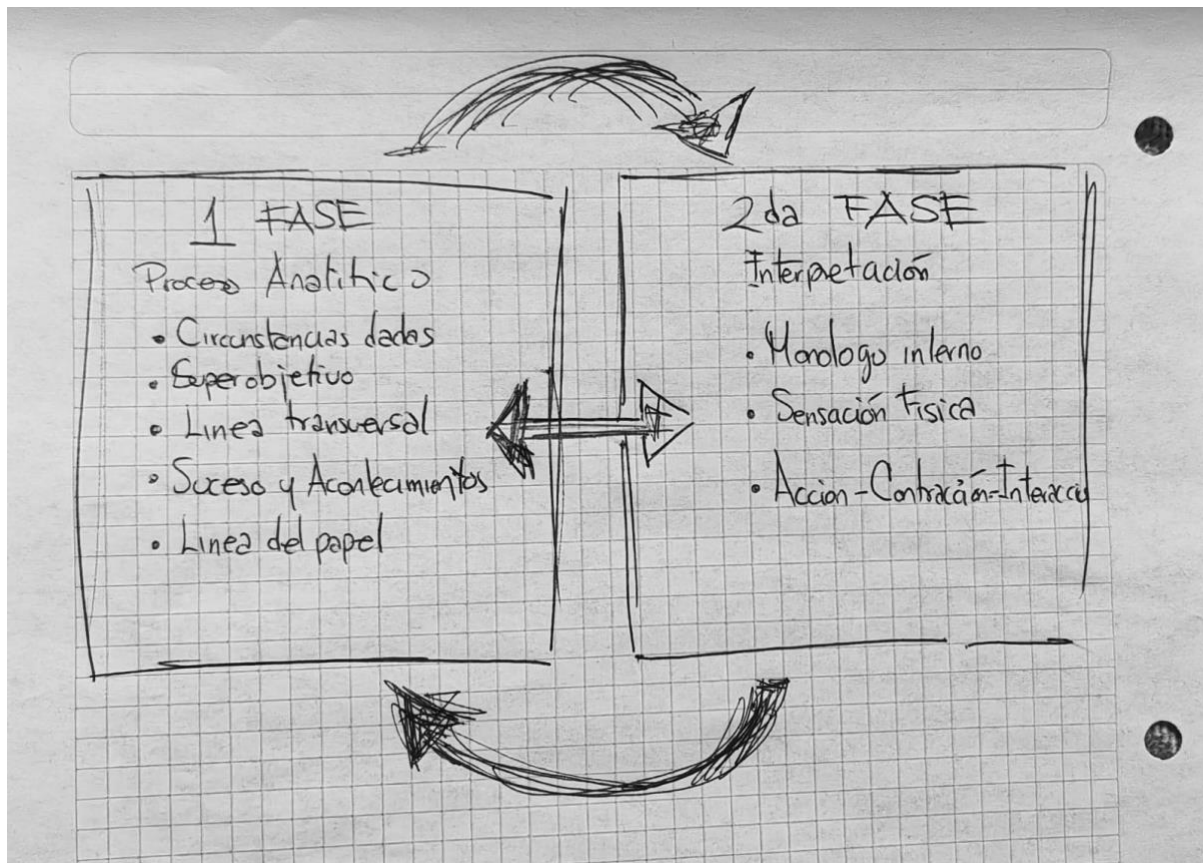 1 FASE
Proceso Analitico
• Circunstancias dadas
• Superobjetivo
• Linea transversal
• Suceso y Acontecimientos
• Linea del papel
2da FASE
Interpretación
• Monologo interno
• Sensación Física
• Accion-Contracción-Interaccu